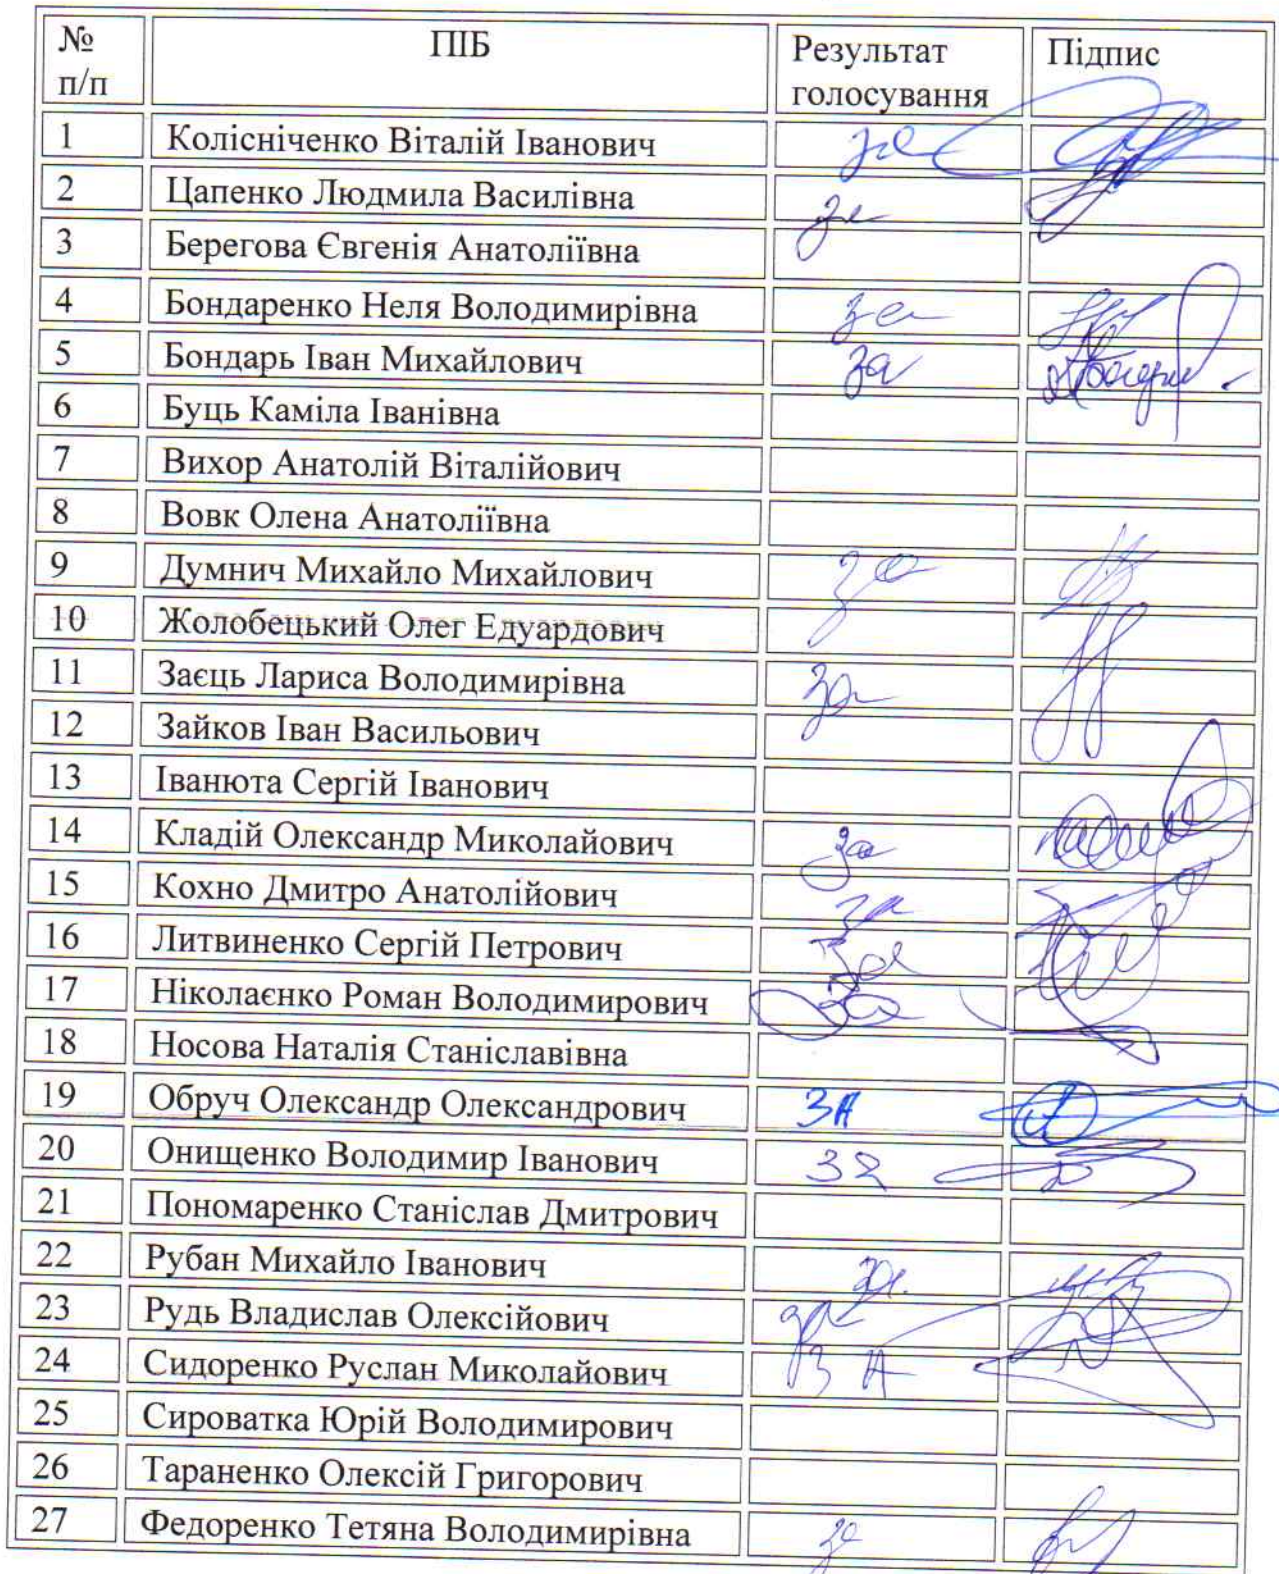 № п/п ПІБ Результат голосування Підпис
1 Колісніченко Віталій Іванович за
2 Цапенко Людмила Василівна за
3 Берегова Євгенія Анатоліївна
4 Бондаренко Неля Володимирівна за
5 Бондарь Іван Михайлович за
6 Буць Каміла Іванівна
7 Вихор Анатолій Віталійович
8 Вовк Олена Анатоліївна
9 Думнич Михайло Михайлович за
10 Жолобецький Олег Едуардович
11 Заєць Лариса Володимирівна за
12 Зайков Іван Васильович
13 Іванюта Сергій Іванович
14 Кладій Олександр Миколайович за
15 Кохно Дмитро Анатолійович за
16 Литвиненко Сергій Петрович за
17 Ніколаєнко Роман Володимирович за
18 Носова Наталія Станіславівна
19 Обруч Олександр Олександрович ЗА
20 Онищенко Володимир Іванович за
21 Пономаренко Станіслав Дмитрович
22 Рубан Михайло Іванович за.
23 Рудь Владислав Олексійович за
24 Сидоренко Руслан Миколайович ЗА
25 Сироватка Юрій Володимирович
26 Тараненко Олексій Григорович
27 Федоренко Тетяна Володимирівна за